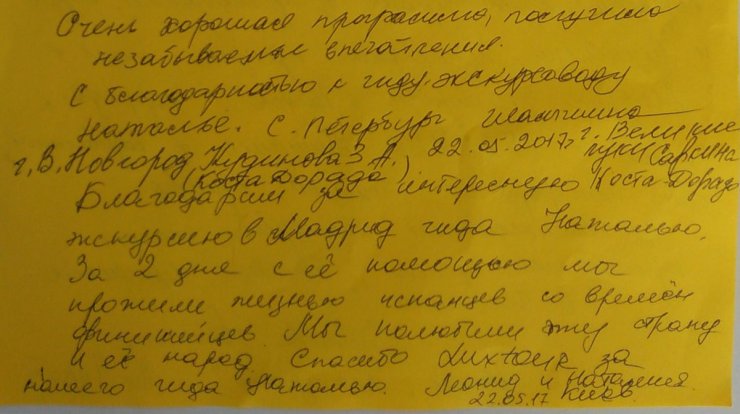 Очень хорошая программа, получила
незабываемые впечатления.
С благодарностью к гиду-экскурсоводу
Наталье. С. Петербург
г. В. Новгород Кудинова З. А. 22.05.2017г г. Великие
(Коста Дорада) луки Саркина
Благодарим за интересную Коста-Дорада
экскурсию в Мадрид гида Наталью.
За 2 дня с её помощью мы
прожили жизнью испанцев со времён
финикийцев. Мы полюбили эту страну
и её народ. Спасибо Luxtour за
нашего гида Наталью. Леонид и Наталия
22.05.17 Киев